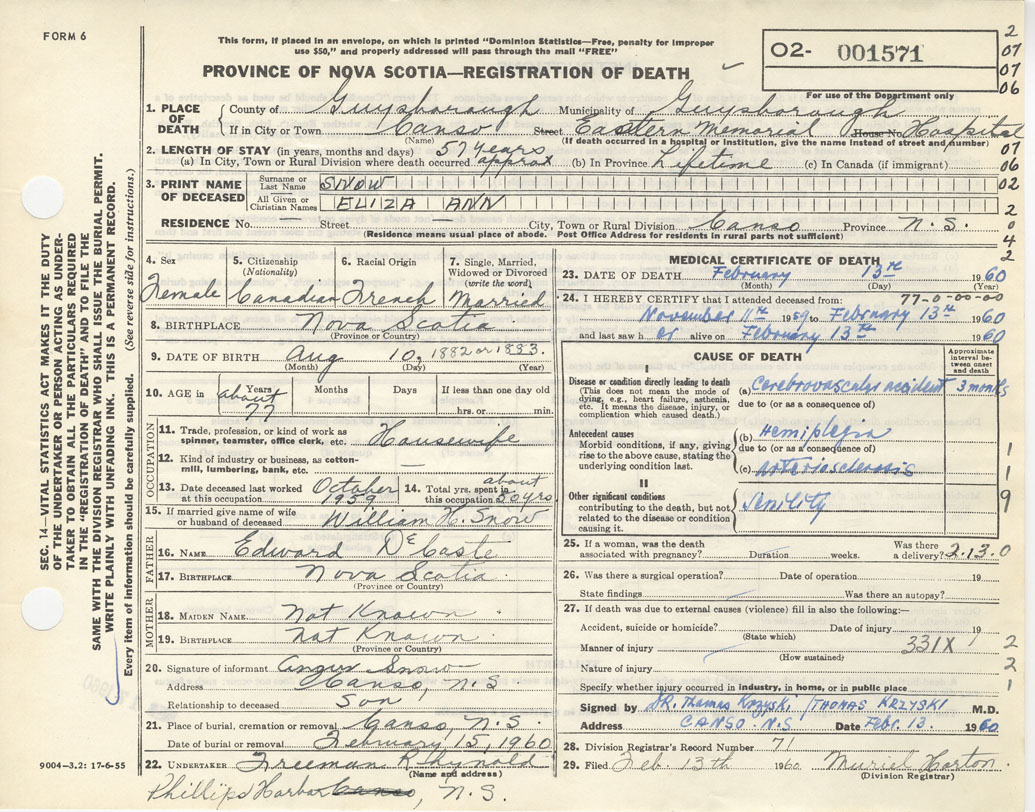 FORM 6
This form, if placed in an envelope, on which is printed "Dominion Statistics—Free, penalty for improper
use $50," and properly addressed will pass through the mail "FREE"
PROVINCE OF NOVA SCOTIA—REGISTRATION OF DEATH
02- 001571
For use of the Department only
2
07
07
06
1. PLACE OF DEATH
County of Guysborough Municipality of Guysborough
If in City or Town Canso Street Eastern Memorial House No. Hospital
(Name) (If death occurred in a hospital or Institution, give the name instead of street and number)
2. LENGTH OF STAY (in years, months and days) 57 years approx
(a) In City, Town or Rural Division where death occurred (b) In Province Lifetime (c) In Canada (if immigrant)
07
06
02
3. PRINT NAME OF DECEASED
Surname or Last Name SNOW
All Given or Christian Names ELIZA ANN
RESIDENCE No. — Street — City, Town or Rural Division Canso Province N.S.
(Residence means usual place of abode. Post Office Address for residents in rural parts not sufficient)
2
0
4
2
SEC. 14—VITAL STATISTICS ACT MAKES IT THE DUTY
OF THE UNDERTAKER OR PERSON ACTING AS UNDER-
TAKER TO OBTAIN ALL THE PARTICULARS REQUIRED
IN THE "REGISTRATION OF DEATH" AND TO FILE THE
SAME WITH THE DIVISION REGISTRAR WHO SHALL ISSUE THE BURIAL PERMIT.
WRITE PLAINLY WITH UNFADING INK. THIS IS A PERMANENT RECORD.
Every item of information should be carefully supplied. (See reverse side for instructions.)
4. Sex Female
5. Citizenship (Nationality) Canadian
6. Racial Origin French
7. Single, Married, Widowed or Divorced (write the word) Married
8. BIRTHPLACE Nova Scotia
(Province or Country)
9. DATE OF BIRTH Aug 10, 1882 or 1883.
(Month) (Day) (Year)
10. AGE in Years about 77 Months Days If less than one day old
hrs. or min.
OCCUPATION
11. Trade, profession, or kind of work as
spinner, teamster, office clerk, etc. Housewife
12. Kind of industry or business, as cotton-
mill, lumbering, bank, etc. —
13. Date deceased last worked
at this occupation October 1959
14. Total yrs. spent in
this occupation about 50 yrs
15. If married give name of wife
or husband of deceased William H. Snow
FATHER
16. NAME Edward DeCaste
17. BIRTHPLACE Nova Scotia
(Province or Country)
MOTHER
18. MAIDEN NAME Not Known
19. BIRTHPLACE Not Known
(Province or Country)
20. Signature of informant Angus Snow
Address Canso, N.S
Relationship to deceased Son
21. Place of burial, cremation or removal Canso, N.S.
Date of burial or removal February 15, 1960
22. UNDERTAKER Freeman
(Name and address)
Phillips Harbor Canso, N.S.
9004—3.2: 17-6-55
MEDICAL CERTIFICATE OF DEATH
23. DATE OF DEATH February 13th 1960
(Month) (Day) (Year)
24. I HEREBY CERTIFY that I attended deceased from: 77-0-00-00
November 11th 1959 to February 13th 1960
and last saw h er alive on February 13th 1960
CAUSE OF DEATH
Approximate interval between onset and death
I
Disease or condition directly leading to death
(This does not mean the mode of
dying, e.g., heart failure, asthenia,
etc. It means the disease, injury, or
complication which caused death.)
(a) Cerebrovascular accident 3 months
due to (or as a consequence of)
Antecedent causes
Morbid conditions, if any, giving
rise to the above cause, stating the
underlying condition last.
(b) Hemiplegia
due to (or as a consequence of)
(c) arteriosclerosis
II
Other significant conditions
contributing to the death, but not
related to the disease or condition
causing it.
Senility
1
1
9
25. If a woman, was the death
associated with pregnancy? Duration weeks. Was there
a delivery? 2.13.0
26. Was there a surgical operation? Date of operation 19
State findings Was there an autopsy?
27. If death was due to external causes (violence) fill in also the following:—
Accident, suicide or homicide? Date of injury 19
(State which)
Manner of injury 331X 1
(How sustained)
Nature of injury
Specify whether injury occurred in industry, in home, or in public place
2
2
1
Signed by Dr. Thomas Krzyski / THOMAS KRZYSKI M.D.
Address CANSO N.S Date Febr. 13. 1960
28. Division Registrar's Record Number 71
29. Filed Feb. 13th 1960 Muriel Horton
(Division Registrar)